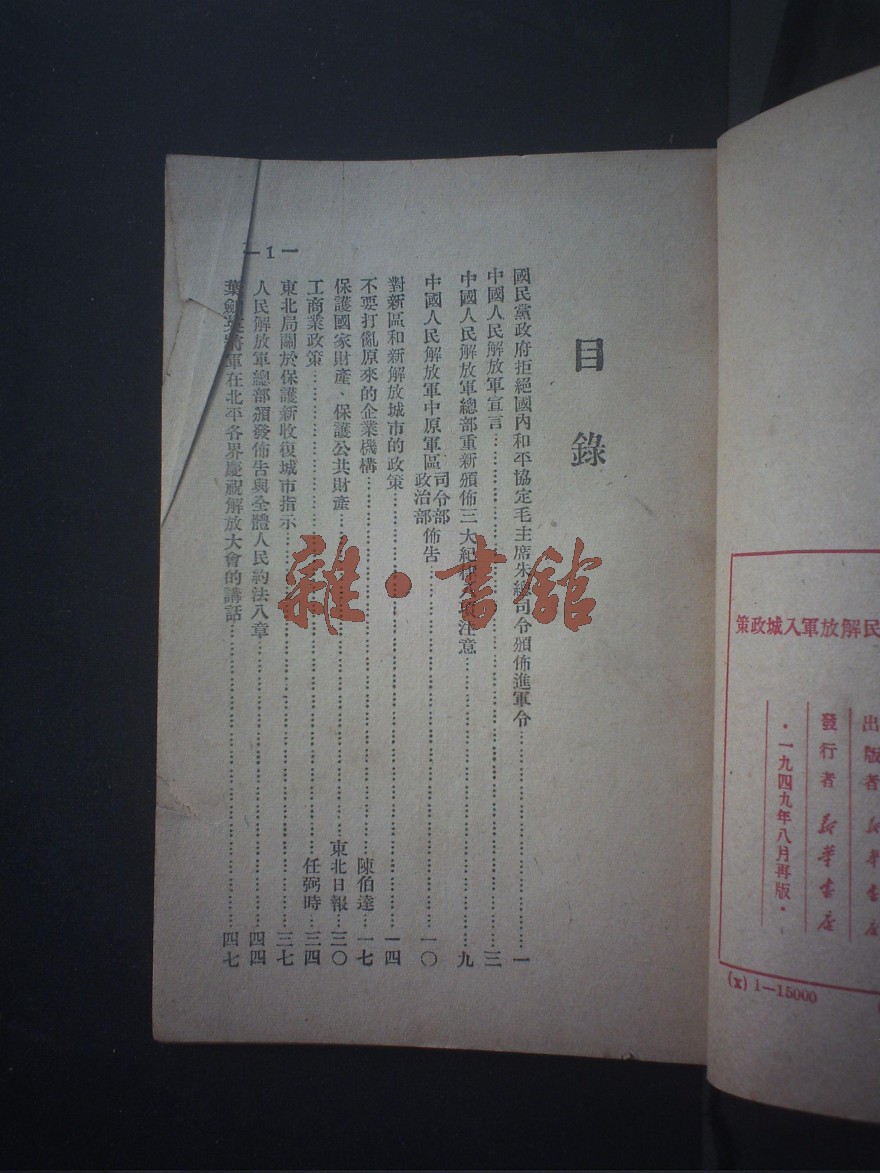 目錄
國民黨政府拒絕國內和平協定毛主席朱總司令頒佈進軍令……一
中國人民解放軍宣言……三
中國人民解放軍總部重新頒佈三大紀律 注意……九
中國人民解放軍中原軍區司令部政治部佈告……一〇
對新區和新解放城市的政策……一四
不要打亂原來的企業機構……陳伯達…一七
保護國家財產、保護公共財產……東北日報…三〇
工商業政策……任弼時…三四
東北局關於保護新收復城市指示……三七
人民解放軍總部頒發佈告與全體人民約法八章……四四
葉劍英將軍在北平各界慶祝解放大會的講話……四七
—1—
雜·書舘
民解放軍入城政策
出版者 新華書店
發行者 新華書店
·一九四九年八月再版·
(x) 1—15000